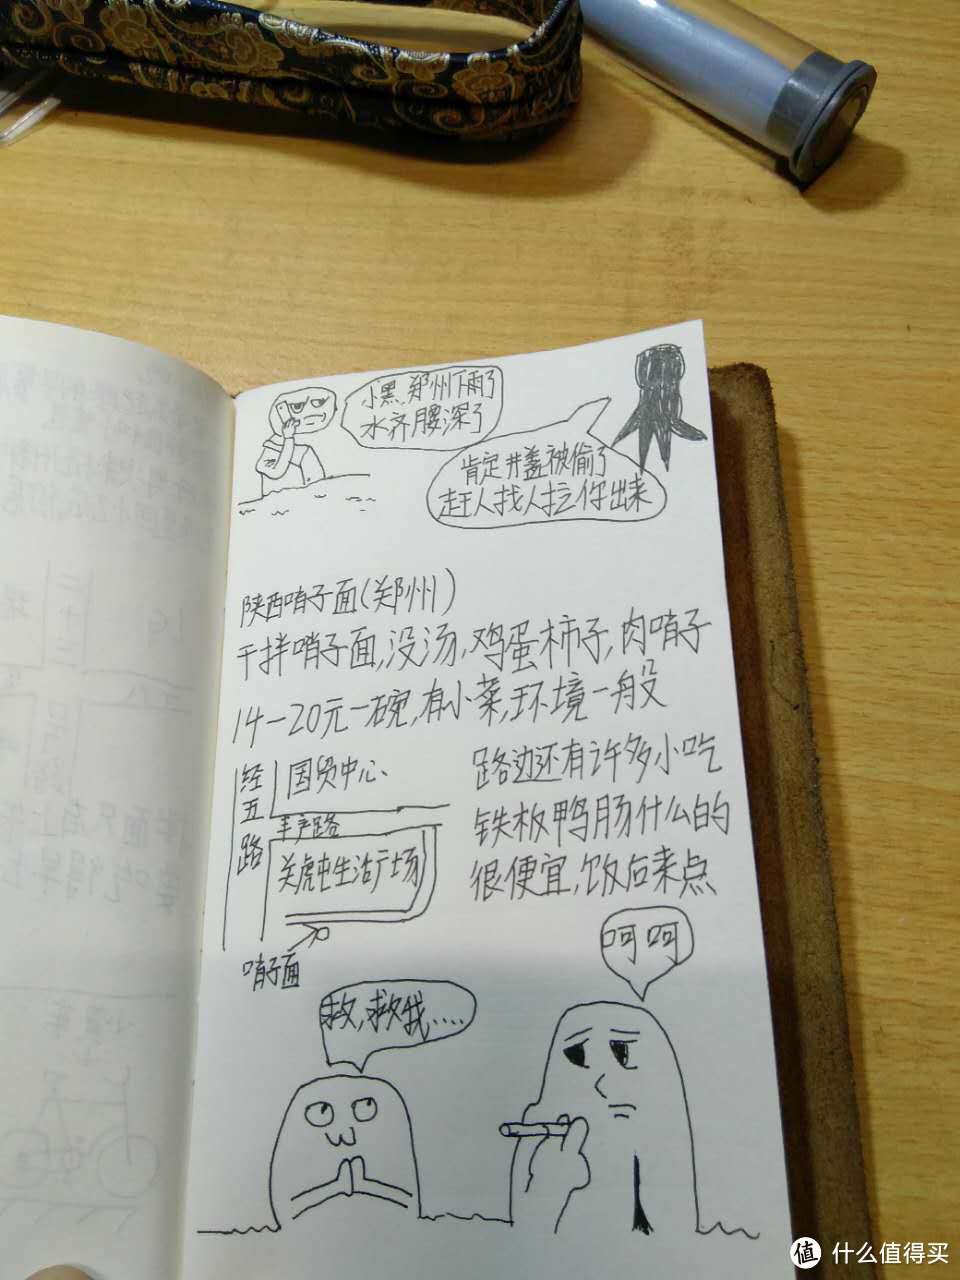 小黑,郑州下雨了
水齐腰深了
肯定井盖被偷了
赶人找人拉你出来
陕西哨子面(郑州)
干拌哨子面,没汤,鸡蛋柿子,肉哨子
14-20元一碗,有小菜,环境一般
经五路
国贸中心
丰产路
关虎屯生活广场
哨子面
路边还有许多小吃
铁板鸭肠什么的
很便宜,饭后来点
呵呵
救,救我.....
值 什么值得买